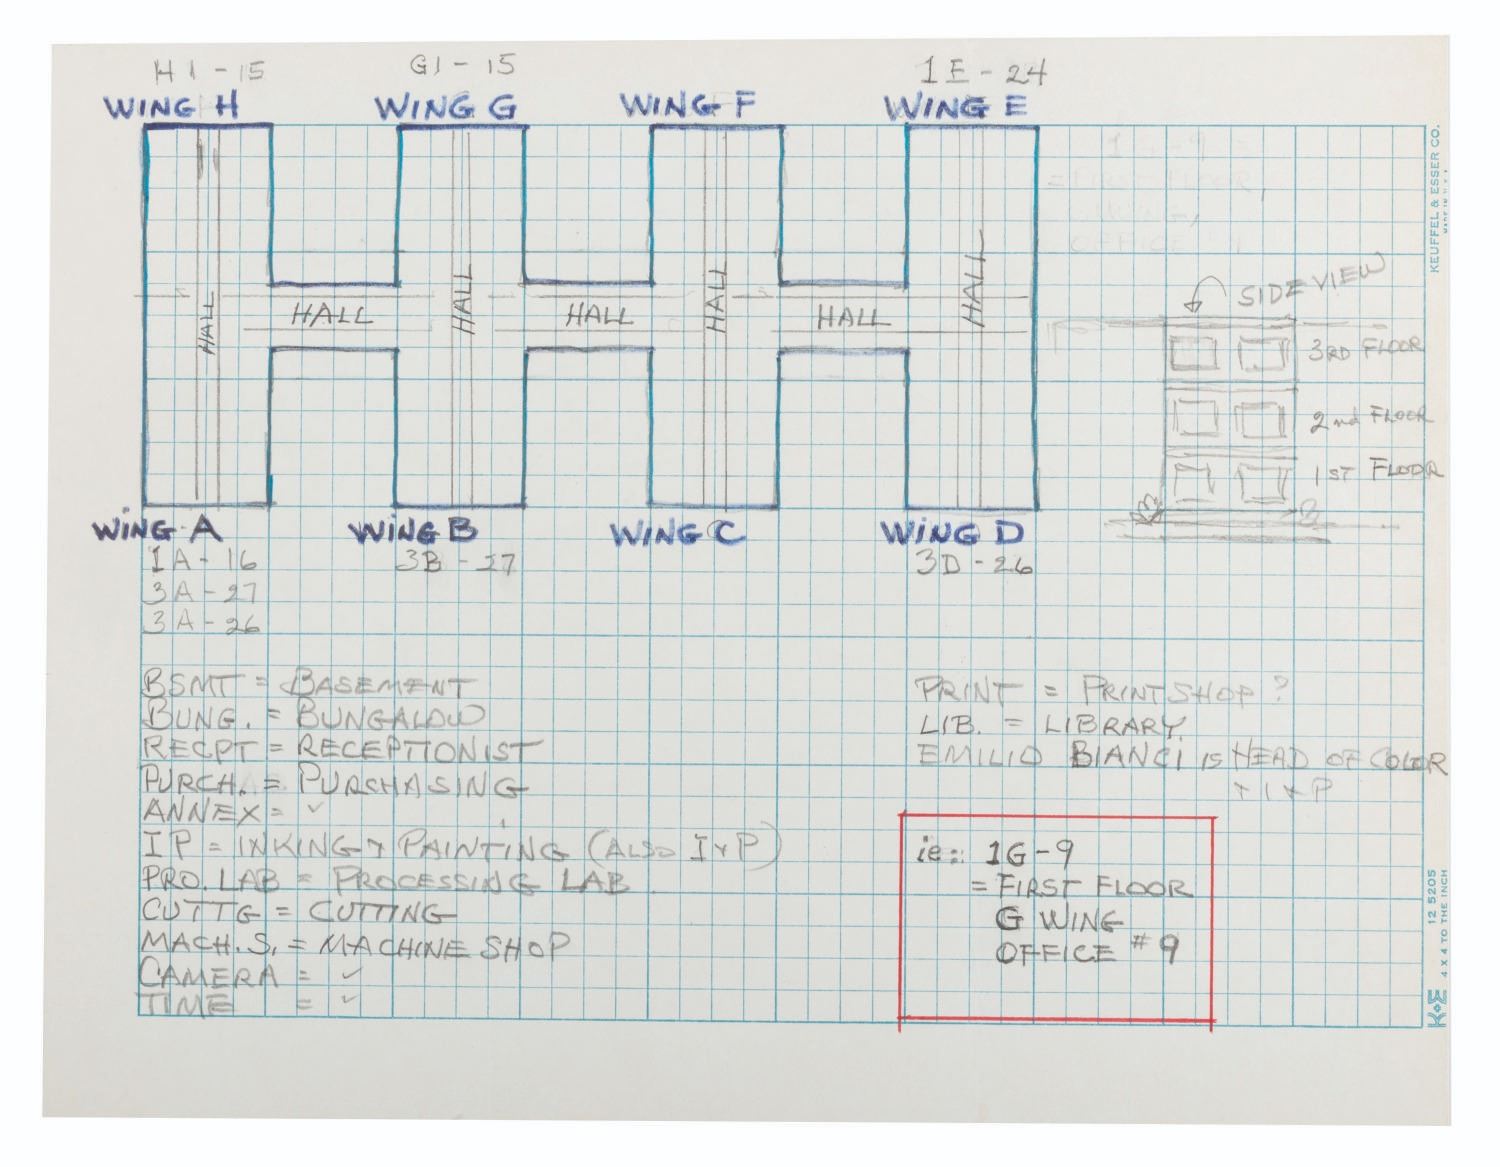 H 1 - 15
G1 - 15
1E - 24
WING H
WING G
WING F
WING E
1G-9 =
= FIRST FLOOR,
G WING,
OFFICE
KEUFFEL & ESSER CO.
SIDE VIEW
HALL
HALL
HALL
HALL
HALL
HALL
HALL
3RD FLOOR
2nd FLOOR
1ST FLOOR
WiNG A
WiNG B
WiNG C
WiNG D
1A - 16
3B - 27
3D - 26
3A - 27
3A - 26
BSMT = BASEMENT
BUNG. = BUNGALOW
RECPT = RECEPTIONIST
PURCH. = PURCHASING
ANNEX = ✓
IP = INKING + PAINTING (ALSO I + P)
PRO. LAB = PROCESSING LAB
CUTTG = CUTTING
MACH. S. = MACHINE SHOP
CAMERA = ✓
TIME = ✓
PRINT = PRINT SHOP?
LIB. = LIBRARY
EMILIO BIANCI is HEAD OF COLOR
+ I + P
ie: 1G-9
= FIRST FLOOR
G WING
OFFICE #9
12 5205
4 X 4 TO THE INCH
K+E